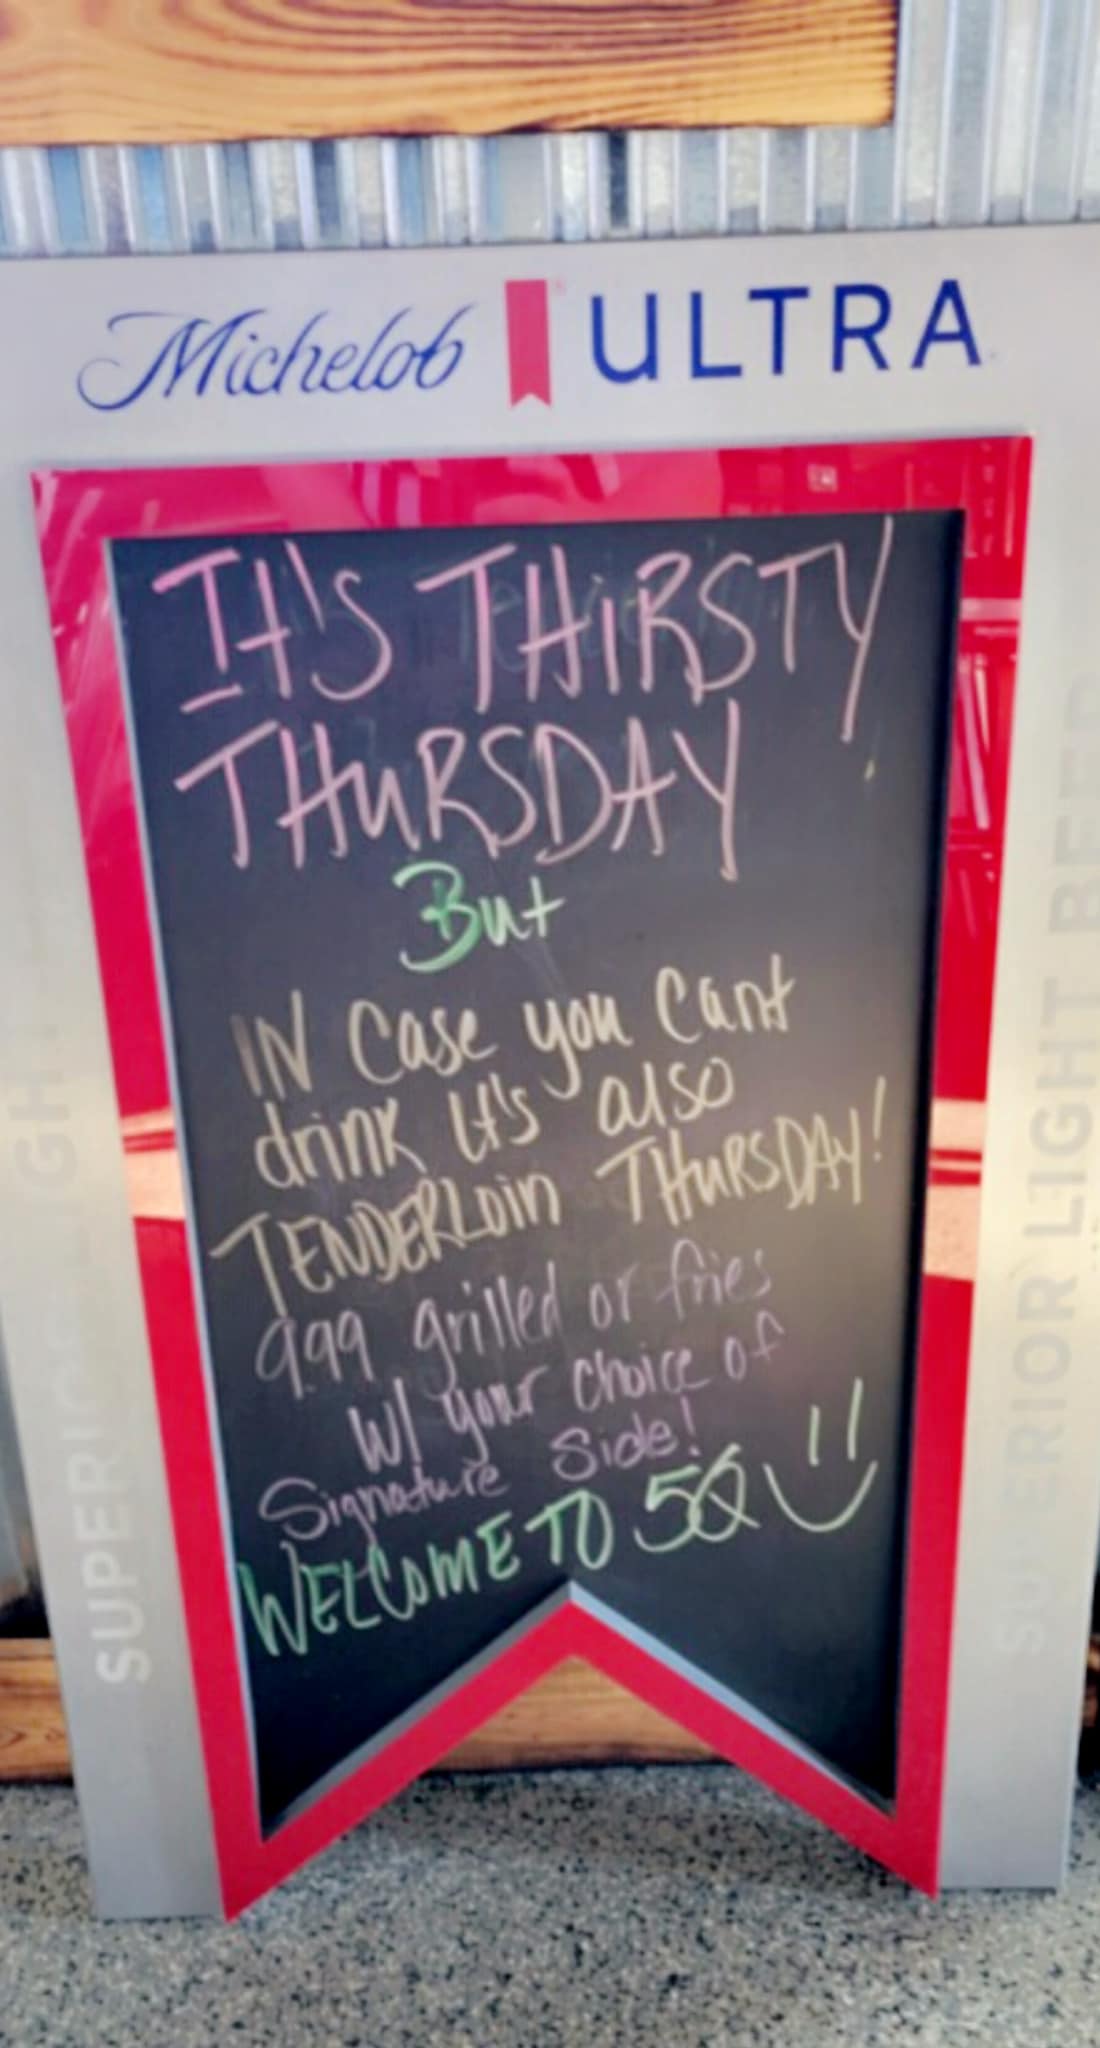 Michelob ULTRA
It's THiRSTY
THuRSDAY
But
IN Case you Cant
drink it's also
TENDERLoin THuRSDAY!
9.99 grilled or fries
W/ your choice of
Signature Side!
WELCOME TO 50
SUPERIOR LIGHT
SUPERIOR LIGHT BEER